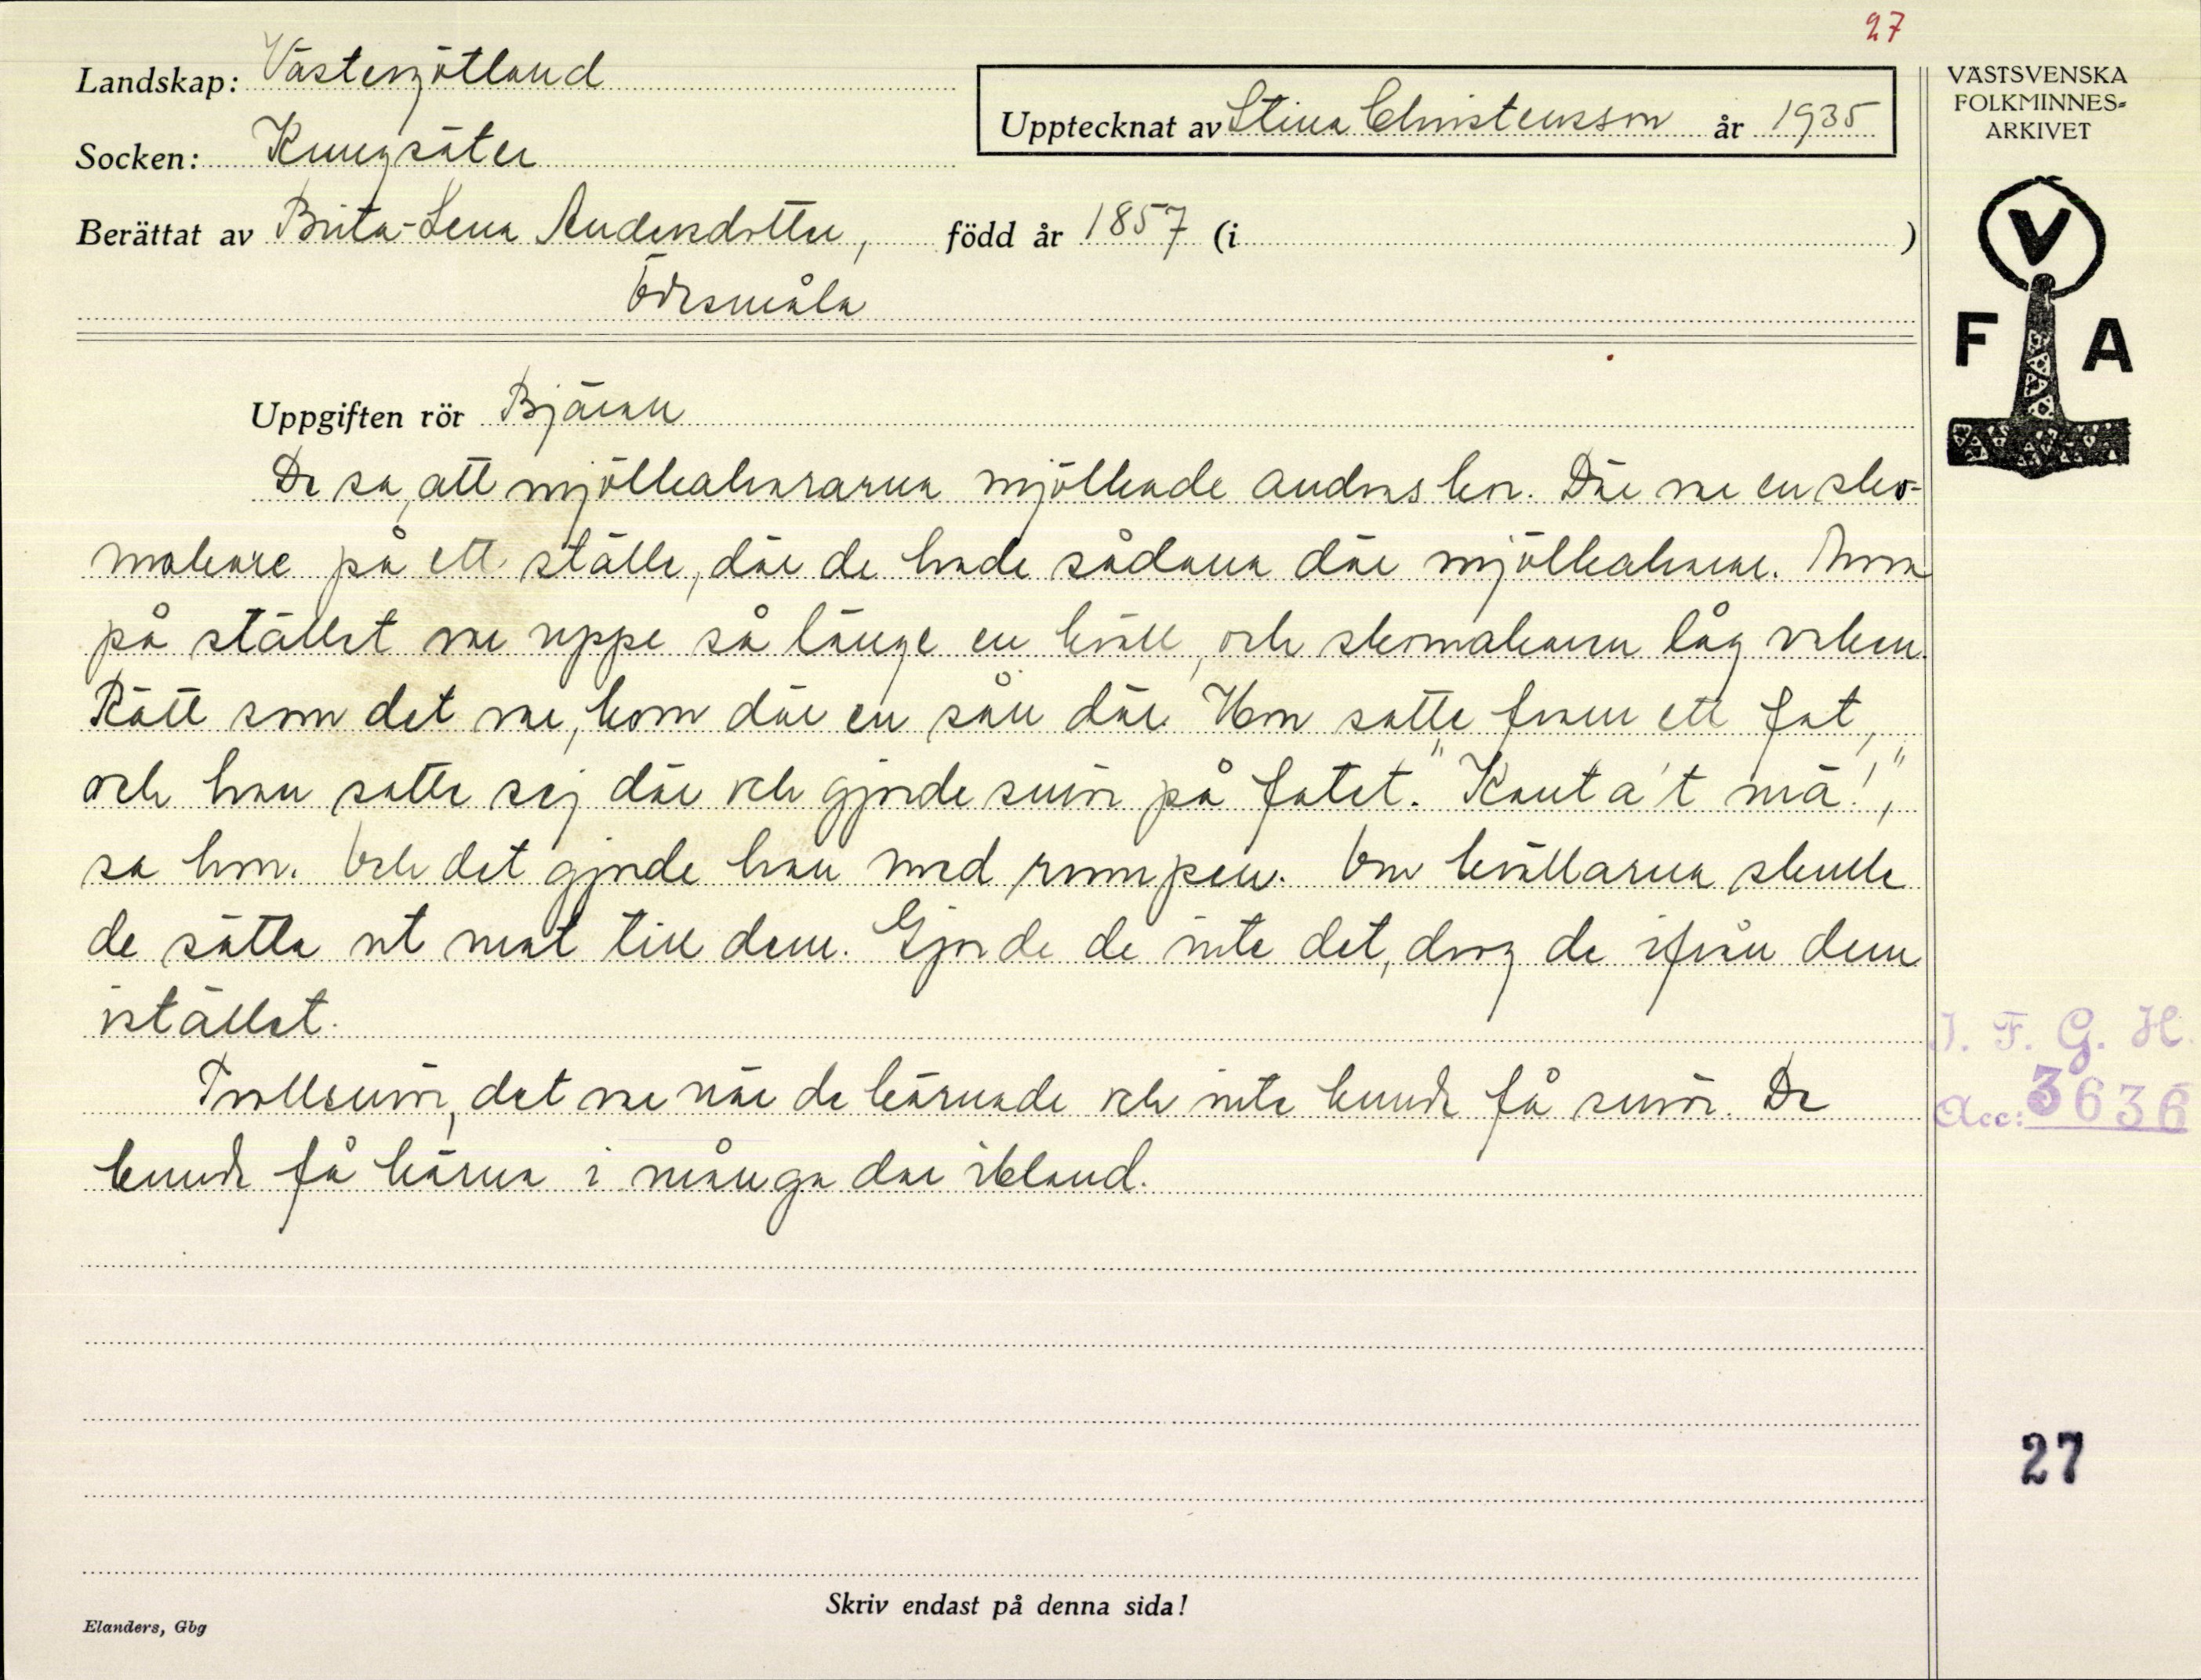 27
Landskap: Västergötland
Upptecknat av Stina Christensson år 1935
VÄSTSVENSKA
FOLKMINNES-
ARKIVET
Socken: Kungsäter
Berättat av Brita-Lena Andersdotter, född år 1857 (i )
V
F A
Uppgiften rör Bjäran
De sa, att mjölkahararna mjölkade andras kor. Där var en sko-
makare på ett ställe, där de hade sådana där mjölkaharar. Mora
på stället var uppe så länge en kväll, och skomakaren låg vaken.
Rätt som det var, kom där en sån där. Hon satte fram ett fat,
och han satte sej där och gjorde smör på fatet. "Kant a't mä!",
sa hon. Och det gjorde han med rumpen. Om kvällarna skulle
de sätta ut mat till dem. Gjorde de inte det, drog de ifrån dem
istället.
Trollsmör, det var när de kärnade och inte kunde få smör. De
kunde få kärna i många dar ibland.
I. F. G. H.
Acc: 3636
27
Skriv endast på denna sida!
Elanders, Gbg